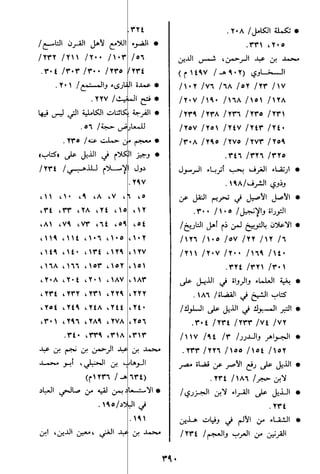 * تكملة الكامل/ ٢٠٨.
٢٠٥، ٣٣١.
محمد بن عبد الرحمن، شمس الدين
السخاوي (٩٠٢ هـ / ١٤٩٧ م)
١٢/ ٢٣/ ٥٢/ ٦٨/ ٧٦/ ١٠٢/
١٢٨/ ١٥١/ ١٦٨/ ١٩٠/ ٢٠٧/
٢٣١/ ٢٣٥/ ٢٣٦/ ٢٣٨/ ٢٣٩/
٢٤٠/ ٢٤٣/ ٢٤٧/ ٢٥١/ ٢٥٧/
٢٥٩/ ٢٧٣/ ٢٧٥/ ٢٩٥/ ٣٠٨/
٣٢٥/ ٣٢٦/ ٣٤٦.
* ارتقاء الغرف بحب أتباء الرسول
وذوي الشرف/١٩٨.
* الأصل الأصيل في تحريم النقل عن
التوراة والإنجيل/ ١٠٥/ ٣٠٠.
* الاعلان بالتوبيخ لمن ذم أهل التاريخ/
٦/ ١٢/ ٢٢/ ٥٧/ ١٠٥/ ١٢٦/
١٤٠/ ١٦٩/ ٢٠٠/ ٢٠٧/ ٢١١/
٣٠١/ ٣٢١/ ٣٢٤.
* بغية العلماء والرواة في الذيل على
كتاب الشيخ في القضاة/ ١٨٦.
* التبر المسبوك في الذيل على السلوك/
٧٢/ ٧٤/ ٢٣٣/ ٢٣٤/ ٣٠٤.
* الجواهر والدرر/ ٣/ ٩٤/ ١١٧/
١٥٢/ ١٥٤/ ١٥٥/ ٢٢٦/ ٢٣٣.
* الذيل على رفع الأصر عن قضاة مصر
لابن حجر/ ١٨٦/ ٢٣٤.
* الذيل على القراء لابن الجزري/
٢٣٤.
* الشفاء من الألم في وفيات هذين
القرنين من العرب والعجم/ ٢٣٤/
٣٢٤.
* الضوء اللامع لأهل القرن التاسع/
٥٦/ ١٠٣/ ٢٠٠/ ٢١١/ ٢٣٢/
٢٣٤/ ٢٣٥/ ٣٠٠/ ٣٠٣/ ٣٠٤.
* عمدة القارىء والمستمع/ ٢٠١.
* فتح المغيث/ ٢٢٧.
* الفرجة بكائنات الكاملية التي ليس فيها
للمعارض حجة/ ٥٦.
* معجم من حملت عنه/ ٢٣٥.
* وجيز الكلام في الذيل على «كتاب»
دول الإسلام للذهبي/ ٢٣٤/
٢٩٧.
٥، ٦، ٧، ٨، ٩، ١٠، ١١،
١٢، ١٥، ٢٤، ٢٨، ٣٣، ٣٤،
٥٤، ٥٩، ٦٤، ٧٣، ٧٩، ٨١،
١٠٢، ١٠٥، ١٠٦، ١١٤، ١١٩،
١٢٧، ١٢٩، ١٣٤، ١٤٠، ١٤٩،
١٥١، ١٥٢، ١٥٣، ١٦٦، ١٦٨،
١٨٣، ١٨٧، ٢٠١، ٢٠٤، ٢٠٨،
٢٢٢، ٢٢٩، ٢٣١، ٢٣٢، ٢٣٤،
٢٤٠، ٢٤٤، ٢٤٨، ٢٤٩، ٢٥٤،
٢٥٦، ٢٧٨، ٢٨٩، ٢٩٦، ٣٠١،
٣١٣، ٣١٨، ٣٣٩، ٣٤٠.
محمد بن عبد الرحمن بن نجم بن عبد
الوهاب بن الحنبلي، أبو محمد
(٦٣٤ هـ / ١٢٣٦م)
* الاستسعاد بمن لقيه من صالحي العباد
في البلاد/ ١٩٥.
١٩١.
محمد بن عبد الغني «معين الدين، ابن
٣٩٠